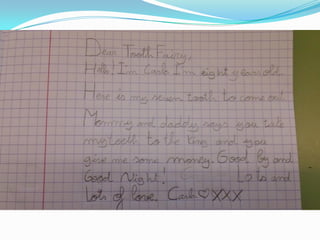 Dear Tooth Fairy,
Hello! I'm Carla I'm eight years old.
Here is my seven tooth to come out.
Mommy and daddy says you take
my teeth to the king and you
give me some money. Good by and
Good Night! Lots and
Lots of love. Carla ♡ XXX